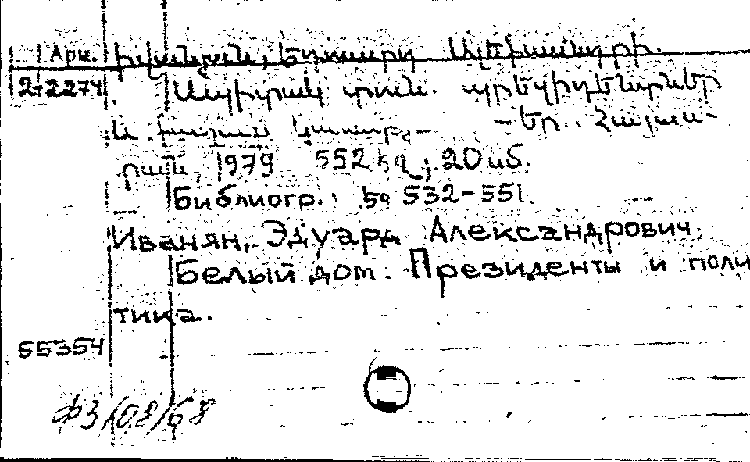 Арм. Իվանյան, Էդուարդ Ալեքսանդրի.
2-2274 Սպիտակ տուն. պրեզիդենտներ
և քաղաքականութ. – Եր.: Հայաս-
տան, 1979 552 էջ; 20 սմ.
Библиогр.: էջ 532-551.
Иванян, Эдуард Александрович.
Белый дом. Президенты и поли
тика.
55354
ФЗ/08/68